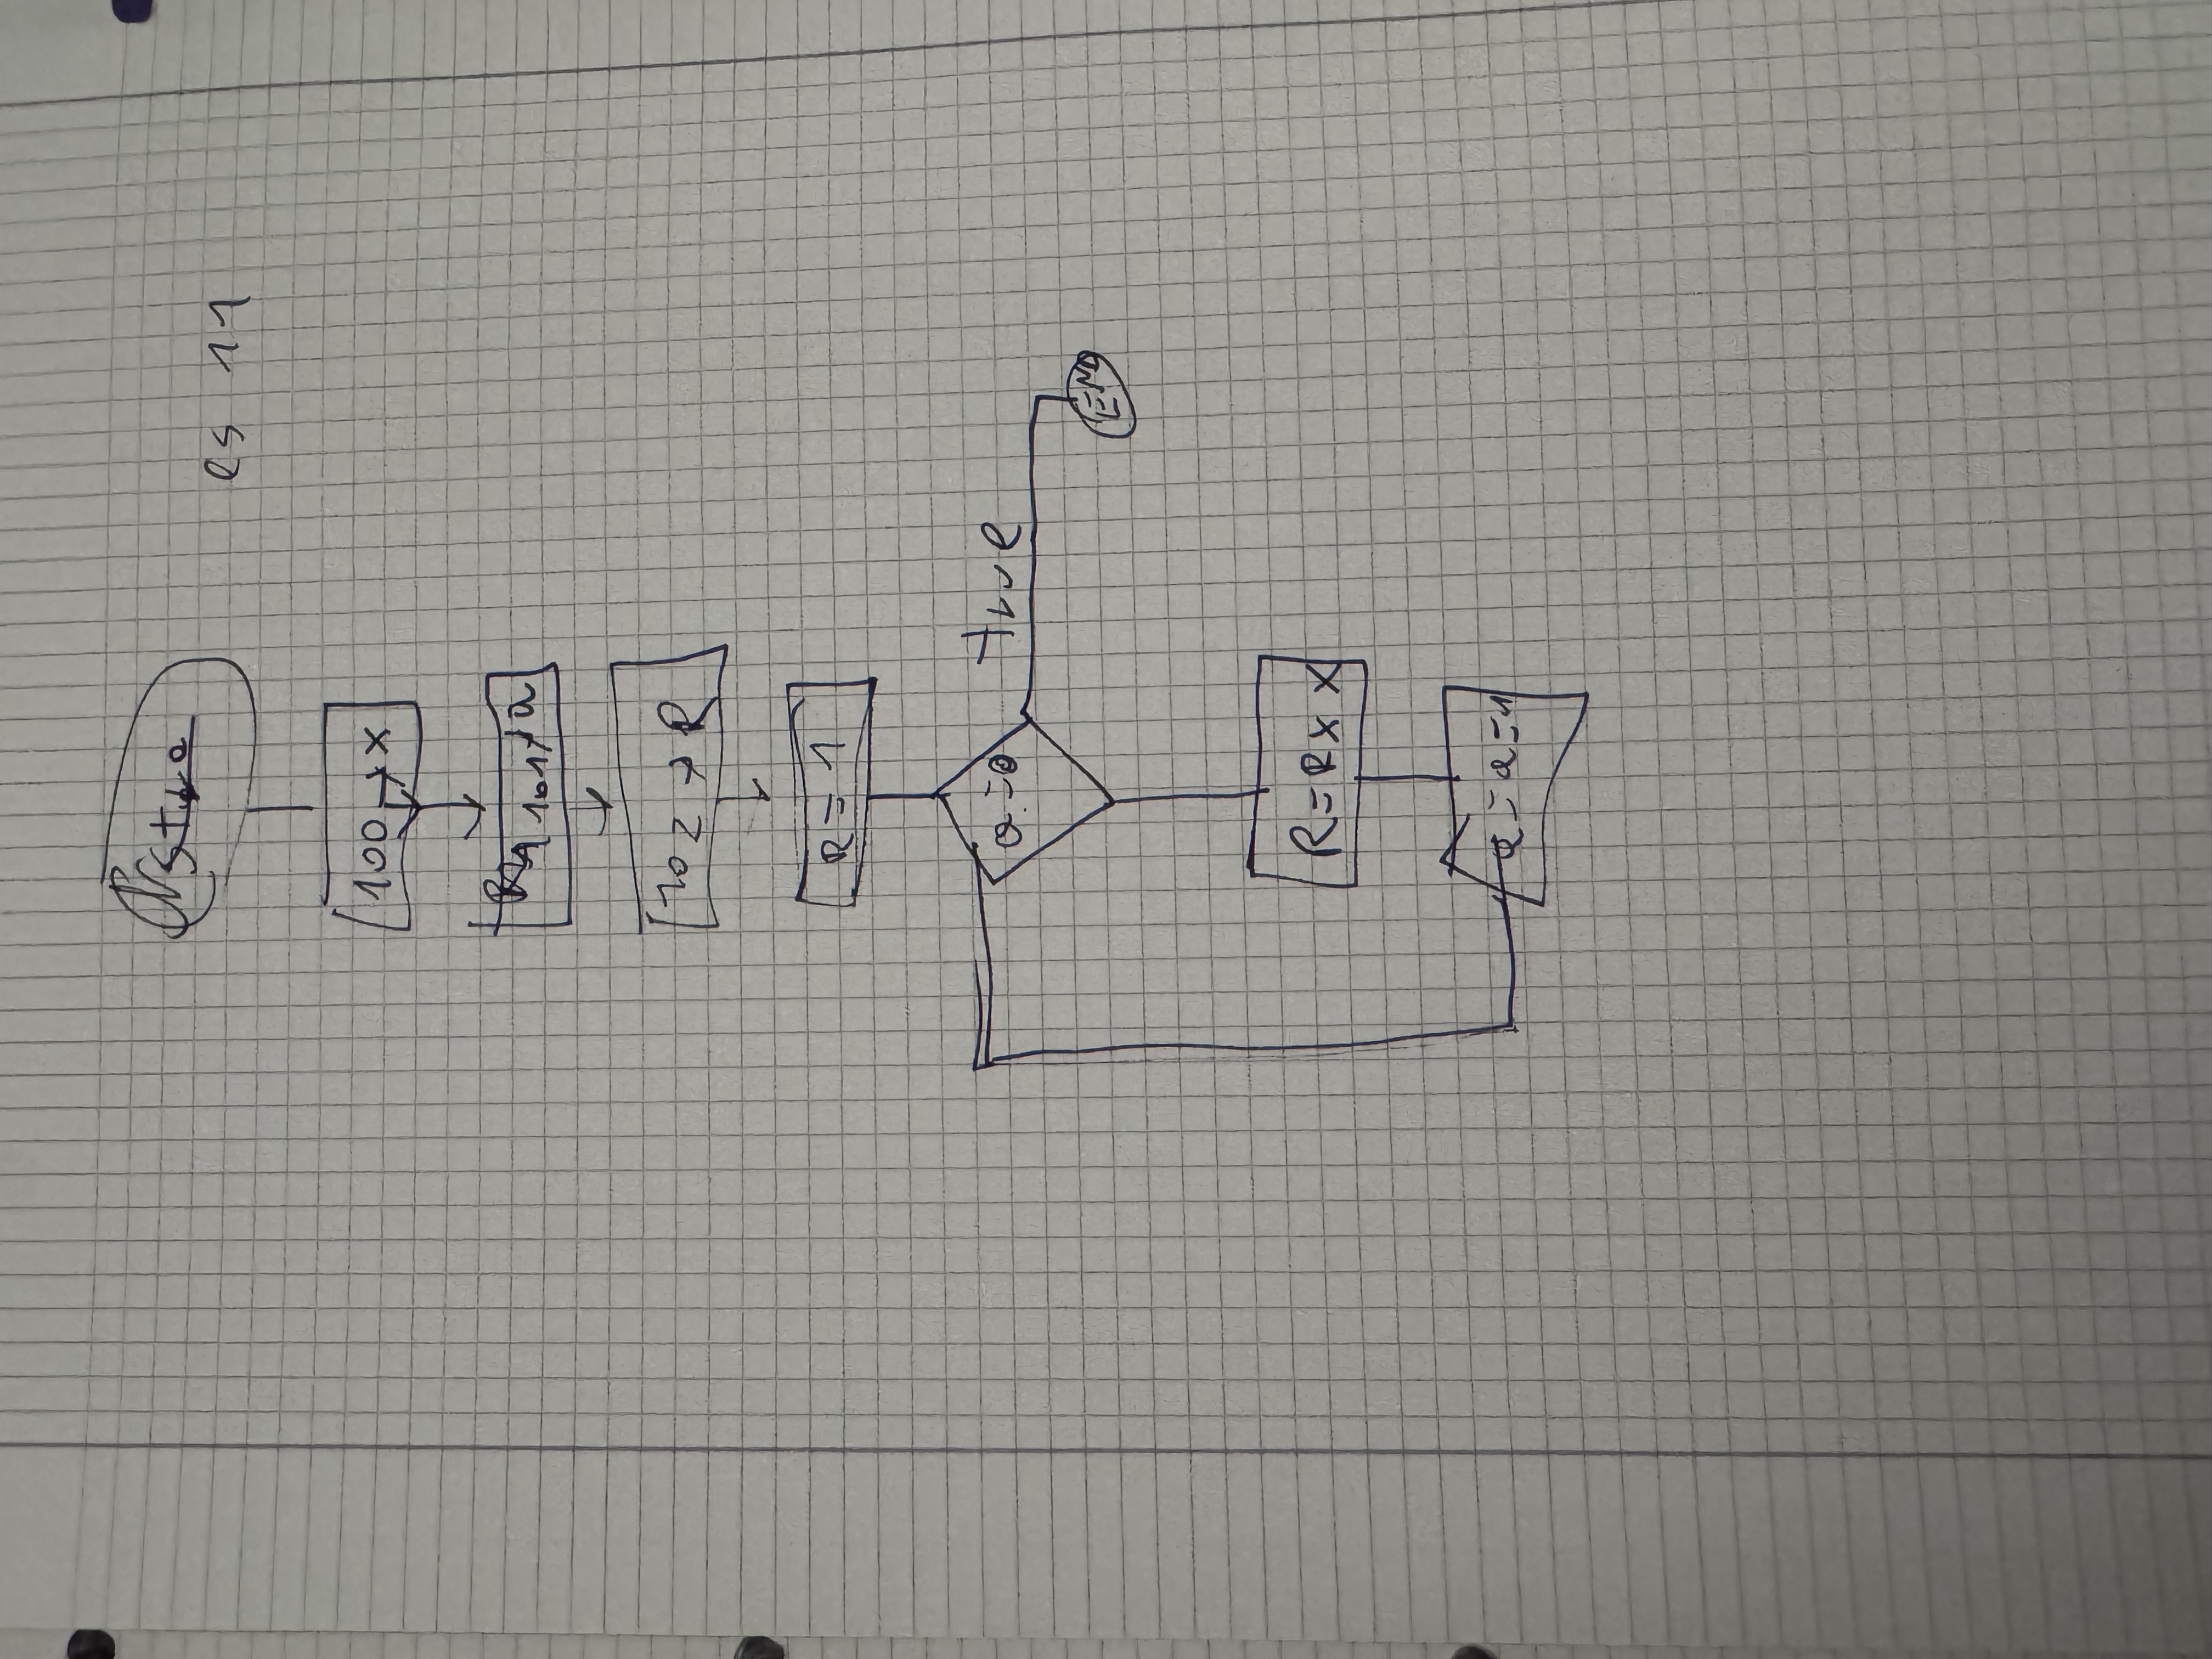 es 11
100 → x
101 → a
102 → R
R = 1
a = 0
true
END
R = R x x
a = a = 1